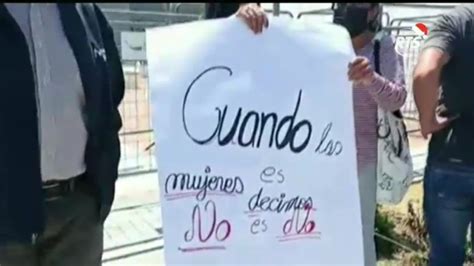 Cuando las
mujeres es
decimos
No es No